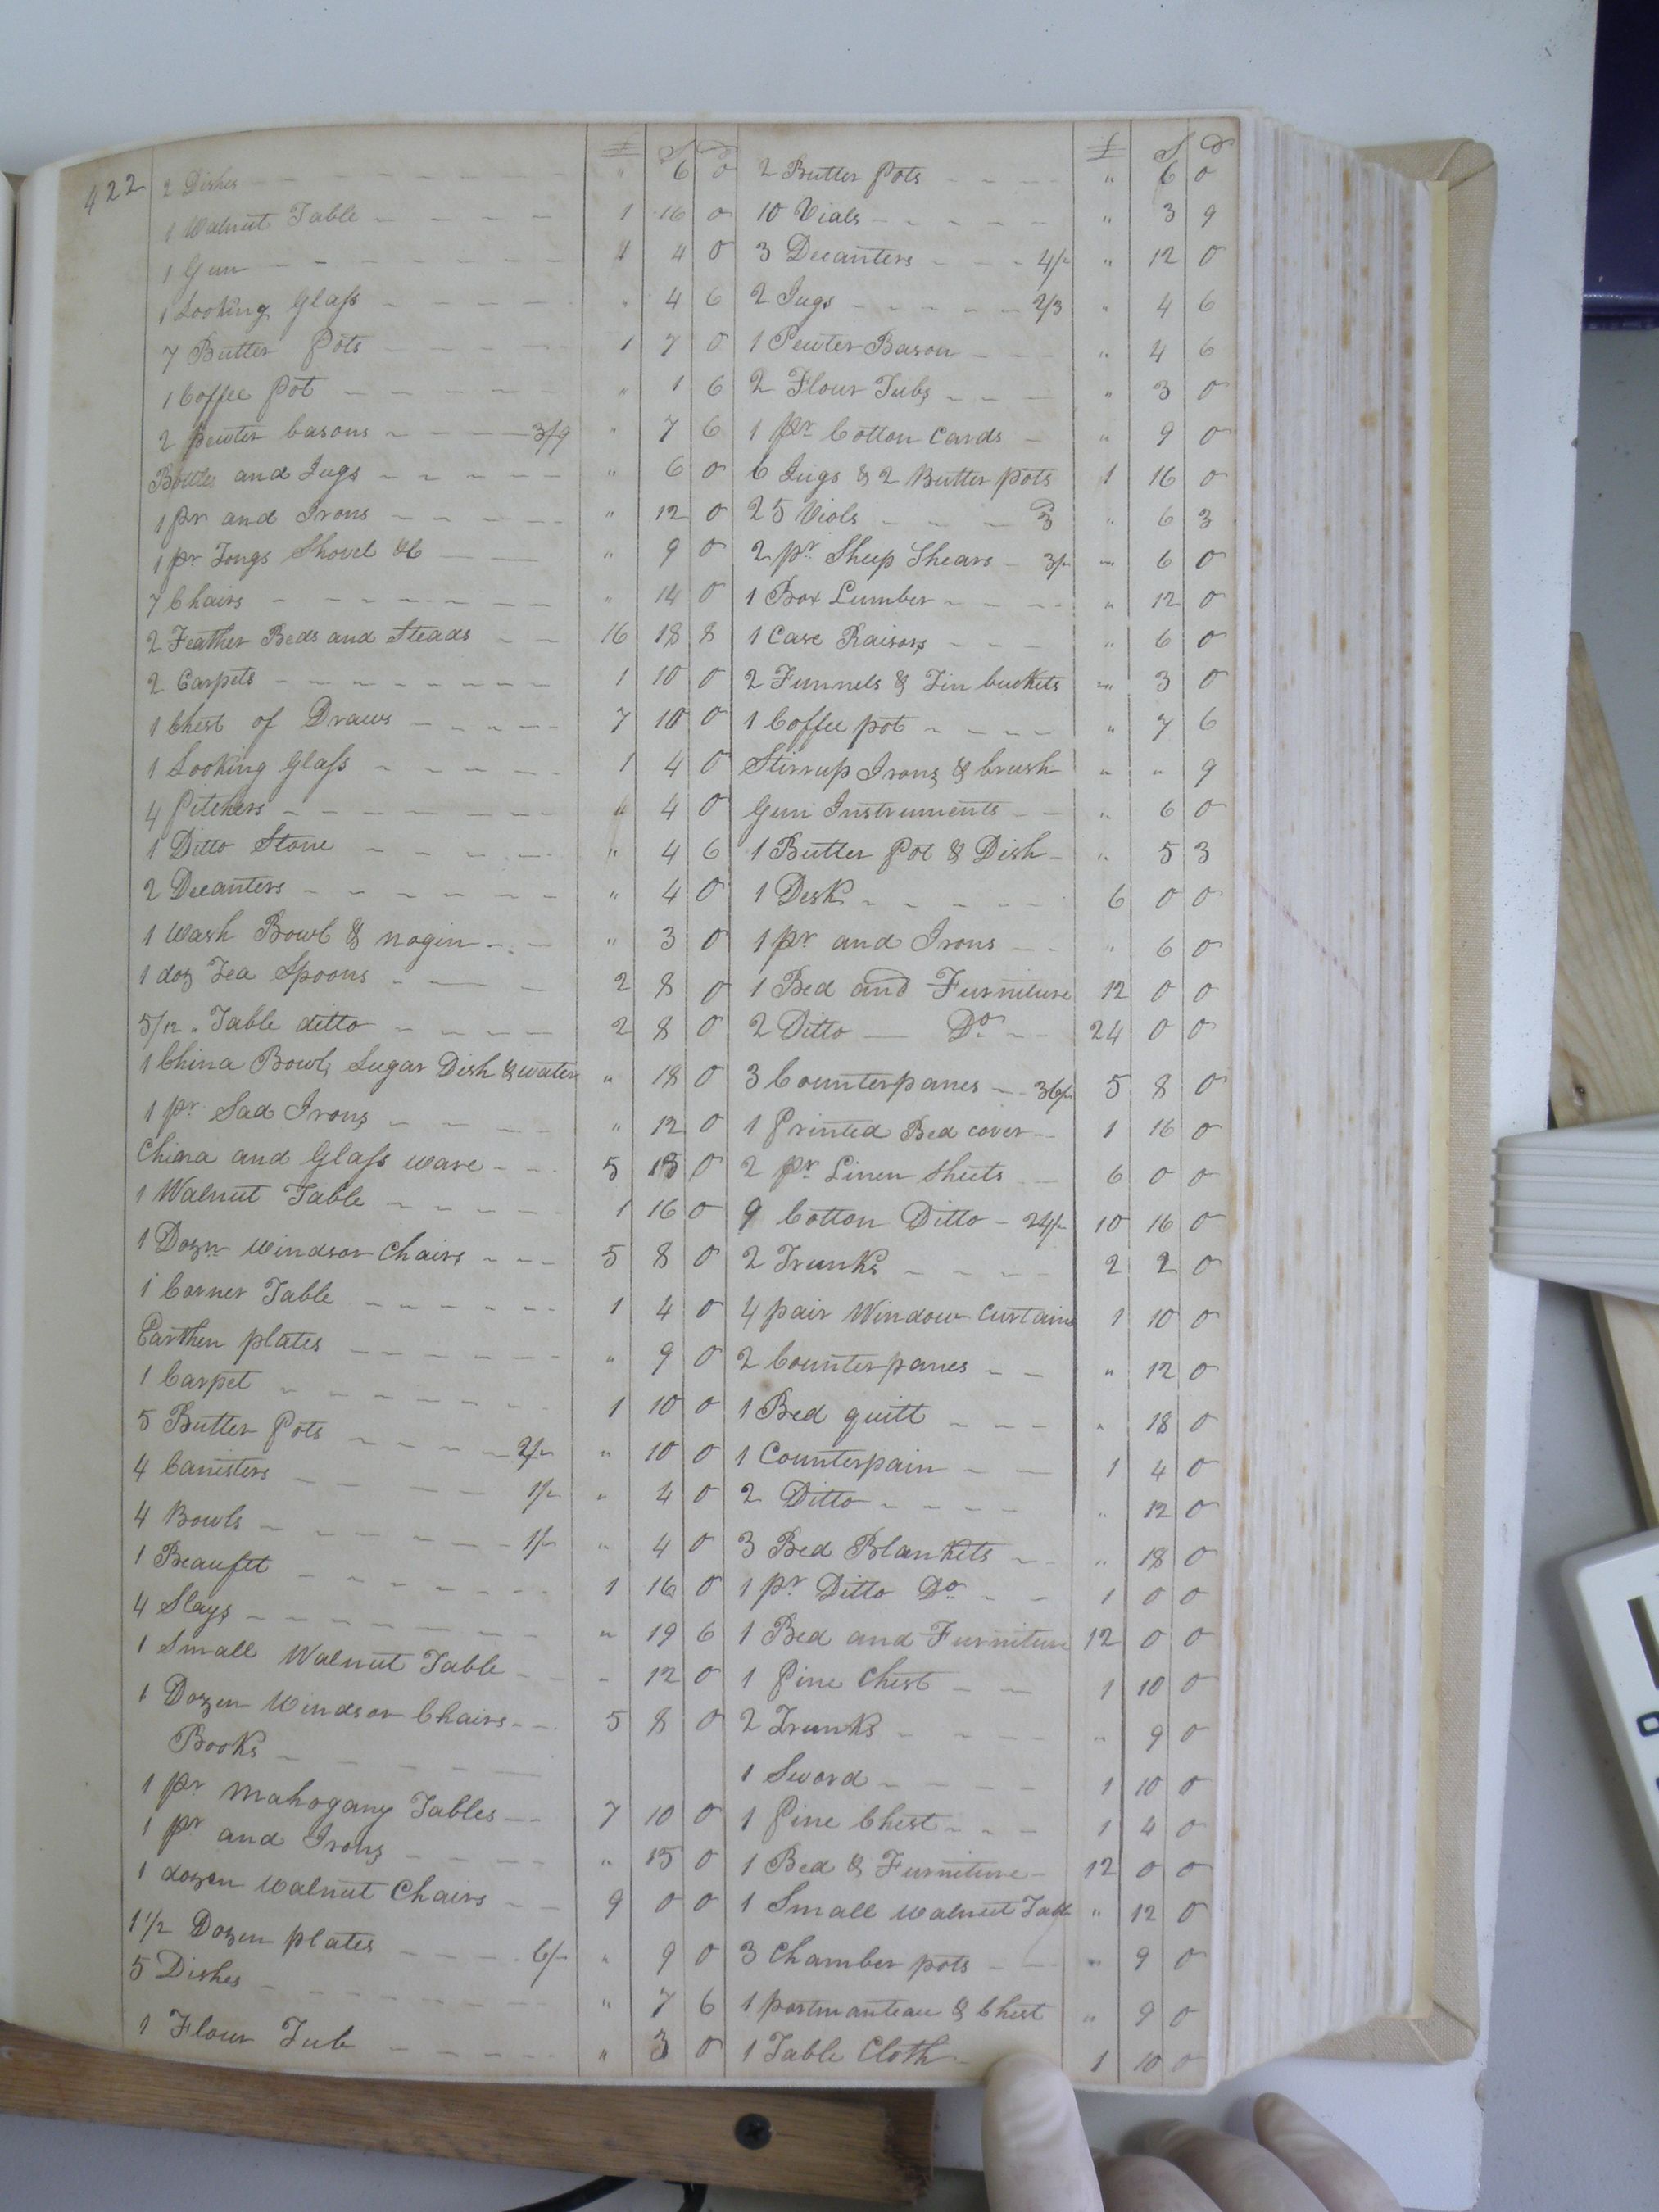 422
£ S D
2 Dishes " 6 0
1 Walnut Table 1 16 0
1 Gun 1 4 0
1 Looking Glass " 4 6
7 Butter Pots 1 7 0
1 Coffee Pot " 1 6
2 pewter basons 3/9 " 7 6
Bottles and Jugs " 6 0
1 pr and Irons " 12 0
1 pr Tongs Shovel &c " 9 0
7 Chairs " 14 0
2 Feather Beds and Steads 16 18 8
2 Carpets 1 10 0
1 Chest of Draws 7 10 0
1 Looking Glass 1 4 0
4 Pitchers " 4 0
1 Ditto Stone " 4 6
2 Decanters " 4 0
1 Wash Bowl & nogin " 3 0
1 doz Tea Spoons 2 8 0
5/12 . Table ditto 2 8 0
1 China Bowl, Sugar Dish & water " 18 0
1 pr Sad Irons " 12 0
China and Glass ware 5 13 0
1 Walnut Table 1 16 0
1 Dozn Windsor Chairs 5 8 0
1 Corner Table 1 4 0
Earthen plates " 9 0
1 Carpet 1 10 0
5 Butter Pots 2/- " 10 0
4 Canisters 1/- " 4 0
4 Bowls 1/- " 4 0
1 Beaufet 1 16 0
4 Slays " 19 6
1 Small Walnut Table " 12 0
1 Dozen Windsor Chairs 5 8 0
Books
1 pr Mahogany Tables 7 10 0
1 pr and Irons " 15 0
1 dozen Walnut Chairs 9 0 0
1 1/2 Dozen plates 6/- " 9 0
5 Dishes " 7 6
1 Flour Tub " 3 0
£ S D
2 Butter Pots " 6 0
10 Vials " 3 9
3 Decanters 4/- " 12 0
2 Jugs 2/3 " 4 6
1 Pewter Bason " 4 6
2 Flour Tubs " 3 0
1 pr Cotton Cards " 9 0
6 Jugs & 2 Butter pots 1 16 0
25 Viols 3 " 6 3
2 pr Sheep Shears 3/- " 6 0
1 Box Lumber " 12 0
1 Case Raisors " 6 0
2 Funnels & Tin buckets " 3 0
1 Coffee pot " 7 6
Stirrup Irons & brush " " 9
Gun Instruments " 6 0
1 Butter Pot & Dish " 5 3
1 Desk 6 0 0
1 pr and Irons " 6 0
1 Bed and Furniture 12 0 0
2 Ditto Do 24 0 0
3 Counterpanes 36/- 5 8 0
1 Printed Bed cover 1 16 0
2 pr Linen Sheets 6 0 0
9 Cotton Ditto 24/- 10 16 0
2 Trunks 2 2 0
4 pair Window Curtains 1 10 0
2 Counterpanes " 12 0
1 Bed quilt " 18 0
1 Counterpain 1 4 0
2 Ditto " 12 0
3 Bed Blankets " 18 0
1 pr Ditto Do 1 0 0
1 Bed and Furniture 12 0 0
1 Pine Chest 1 10 0
2 Trunks " 9 0
1 Sword 1 10 0
1 Pine Chest 1 4 0
1 Bed & Furniture 12 0 0
1 Small Walnut Table " 12 0
3 Chamber pots " 9 0
1 portmanteau & Chest " 9 0
1 Table Cloth 1 10 0